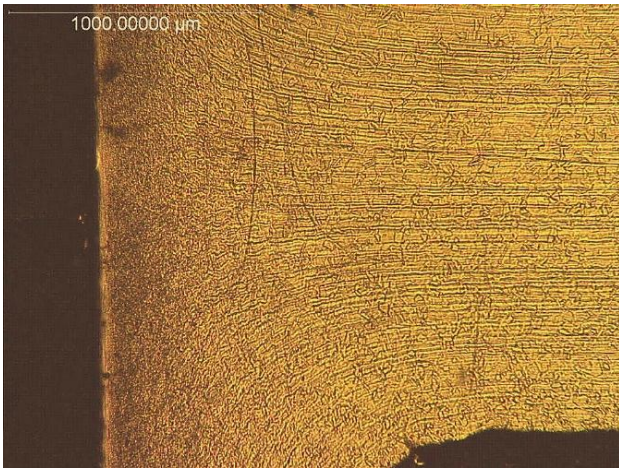 1000.00000 µm